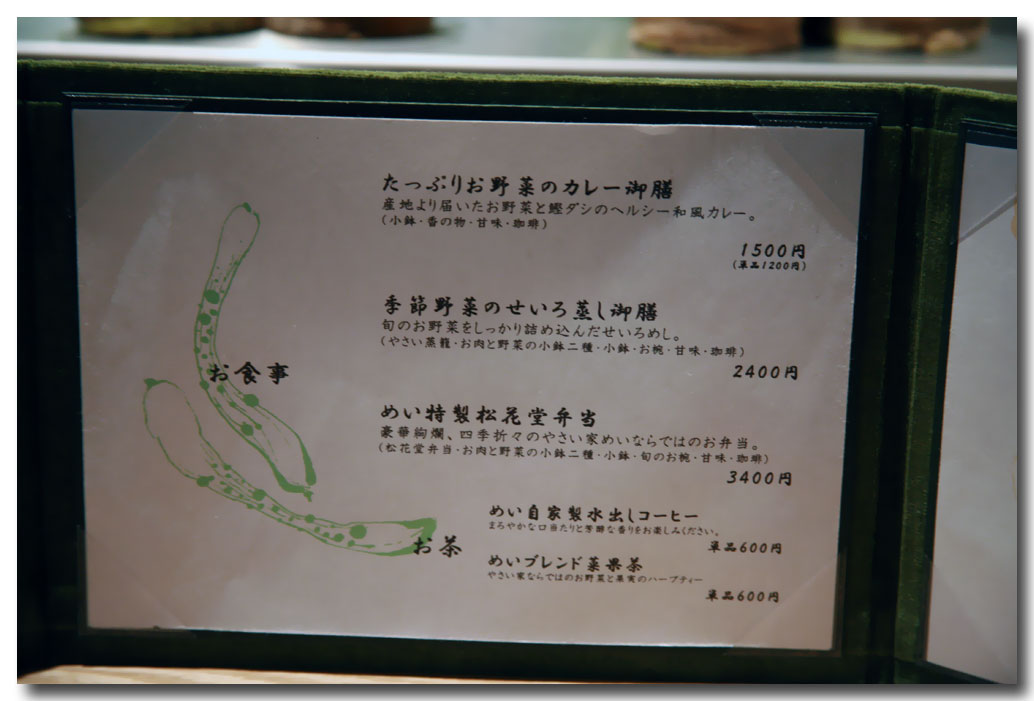 たっぷりお野菜のカレー御膳
産地より届いたお野菜と鰹ダシのヘルシー和風カレー。
(小鉢・香の物・甘味・珈琲)
1500円
(単品1200円)
季節野菜のせいろ蒸し御膳
旬のお野菜をしっかり詰め込んだせいろめし。
(やさい蒸籠・お肉と野菜の小鉢二種・小鉢・お椀・甘味・珈琲)
2400円
お食事
めい特製松花堂弁当
豪華絢爛、四季折々のやさい家めいならではのお弁当。
(松花堂弁当・お肉と野菜の小鉢二種・小鉢・旬のお椀・甘味・珈琲)
3400円
お茶
めい自家製水出しコーヒー
まろやかな口当たりと芳醇な香りをお楽しみください。
単品600円
めいブレンド菜果茶
やさい家ならではのお野菜と果実のハーブティー
単品600円